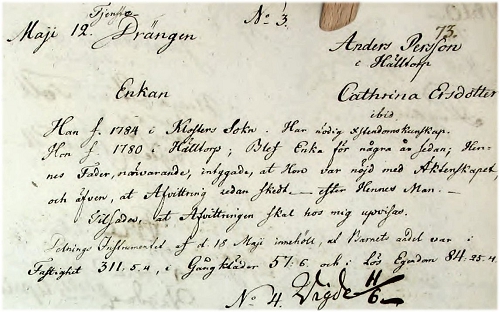 Tjenste
No 3.
73.
Maji 12. Drängen
Anders Persson
i Hälltorp
Enkan
Cathrina Ersdotter
ibid
Han f. 1784 i Klosters Sokn. Har nödig Xstendomskunskap.
Hon f. 1780 i Hälltorp; Blef Enka för några år sedan; Hen-
nes Fader, närvarande, intygade, at Hon var nöjd med Äktenskapet,
och äfven, at Afvittring sedan skedt. — efter Hennes Man. —
Gilsade, at Afvittringen skal hos mig upvisas.
Instrumentet af d. 18 Maji innehölt, at Barnets andel var i
Fastighet 311.5.4, i Gångkläder 51:6 och i Lös Egendom 84.25.4
No 4. Vigde 11/6